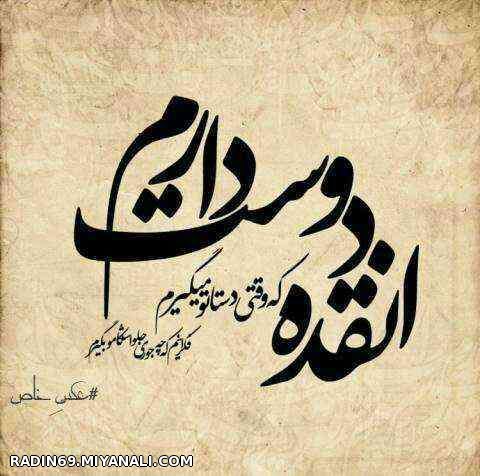 انقده دوست دارم
که وقتی دستاتو میگیرم
فکر اینم که چه جوری جلو اشکامو بگیرم
#عکس خاص
RADIN69.MIYANALI.COM